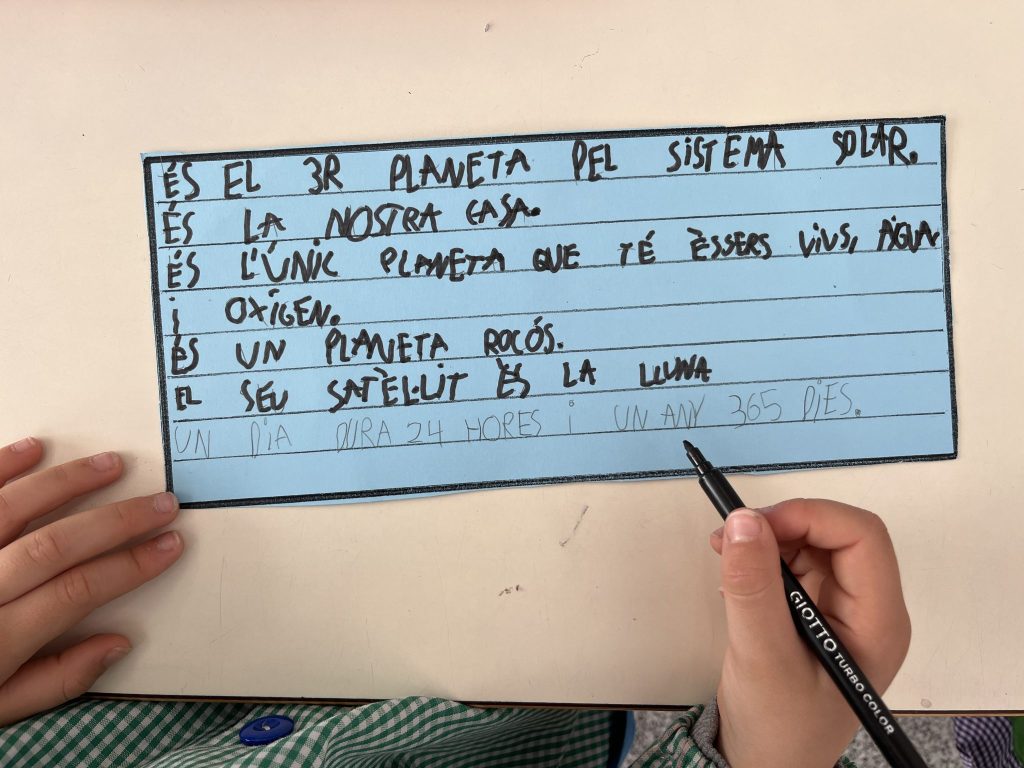 ÉS EL 3R PLANETA DEL SISTEMA SOLAR.
ÉS LA NOSTRA CASA.
ÉS L'ÚNIC PLANETA QUE TÉ ÈSSERS VIUS, AIGUA
i OXÍGEN.
ÉS UN PLANETA ROCÓS.
EL SEU SATÈL·LIT ÈS LA LLUNA
UN DIA DURA 24 HORES i UN ANY 365 DIES.
GIOTTO TURBO COLOR